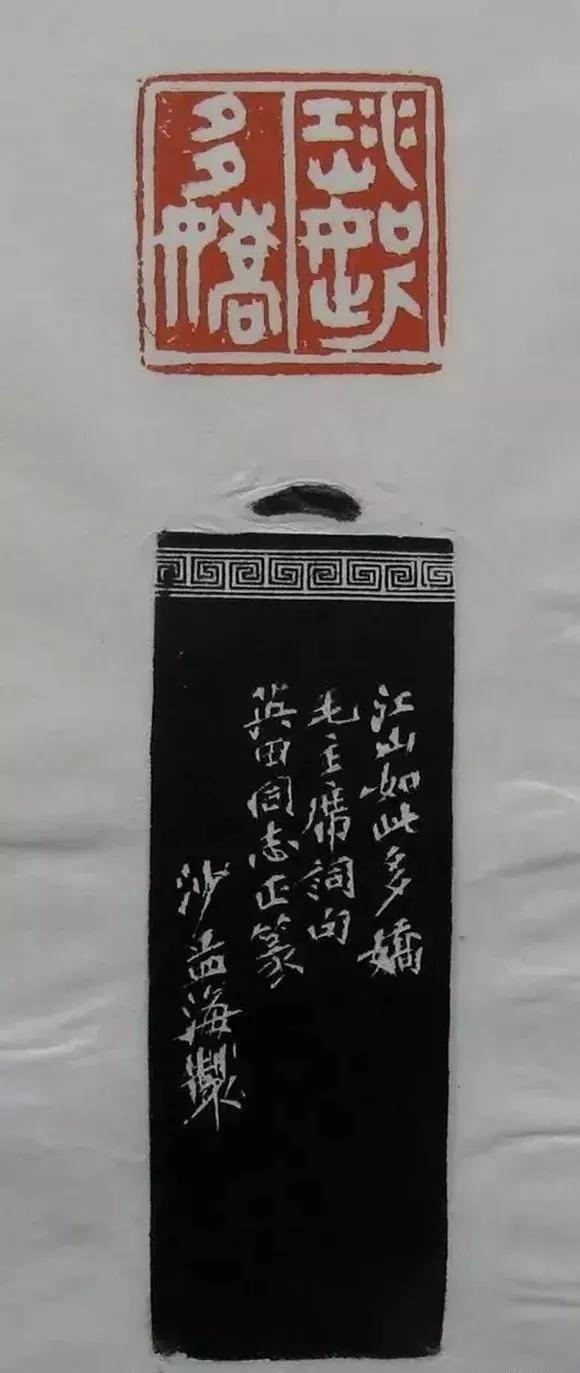 江山如此
多嬌
江山如此多嬌
毛主席詞句
英田同志正篆
沙孟海製